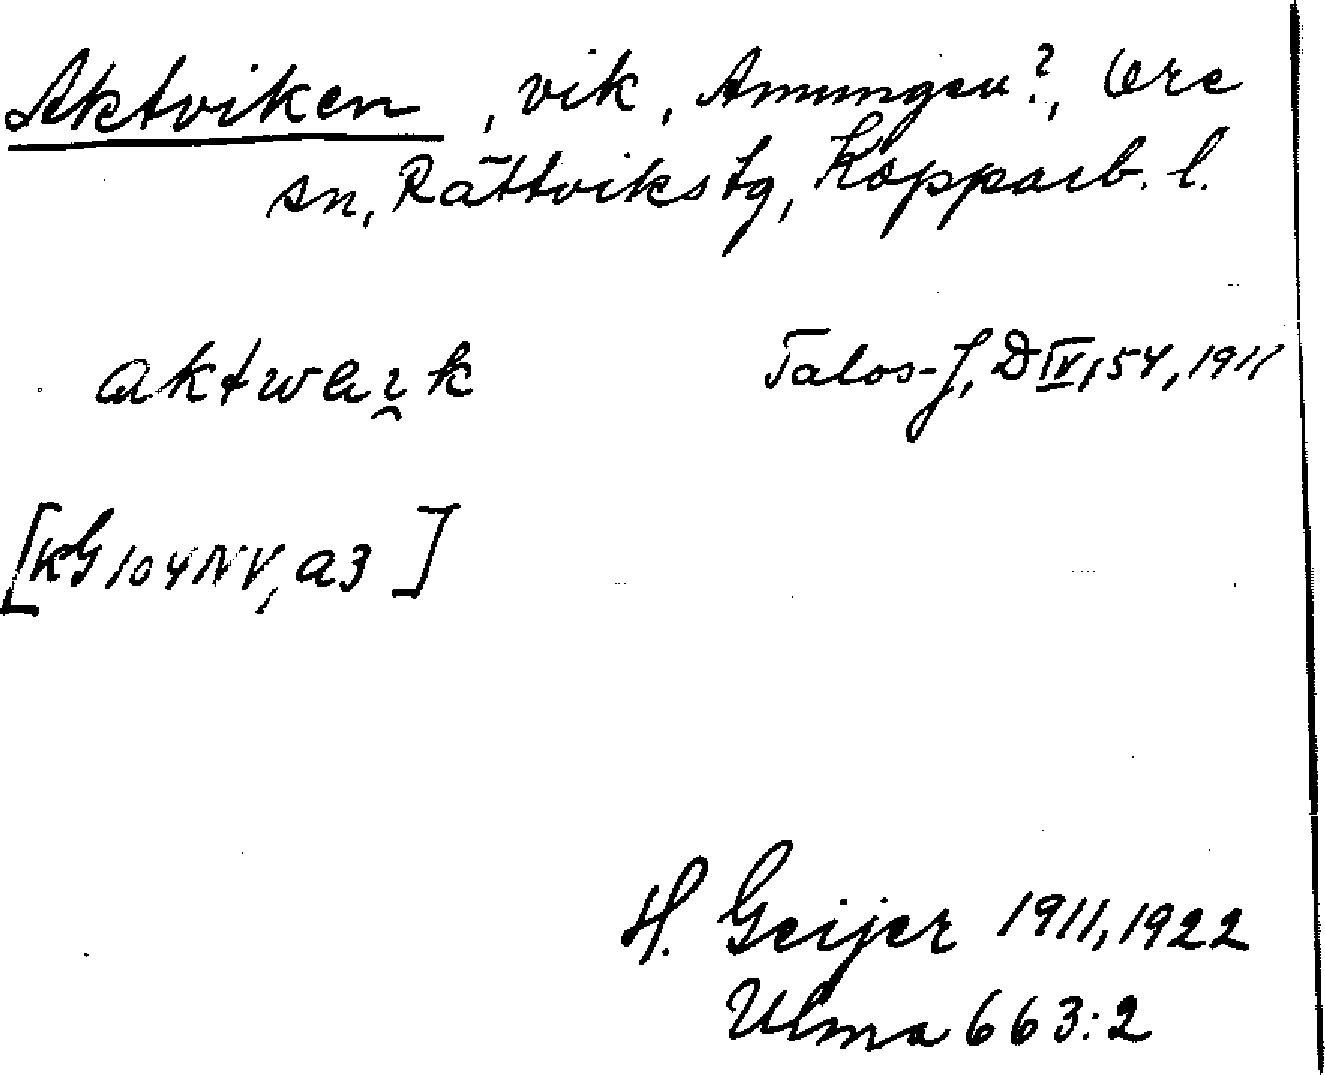 Aktviken, vik, Amungen?, Ore
sn, Rättviks tg, Kopparb. l.
aktwaı̯k Talos-J, D IV, 54, 1911
[KG 104 NV, a3]
H. Geijer 1911, 1922
Ulma 663:2